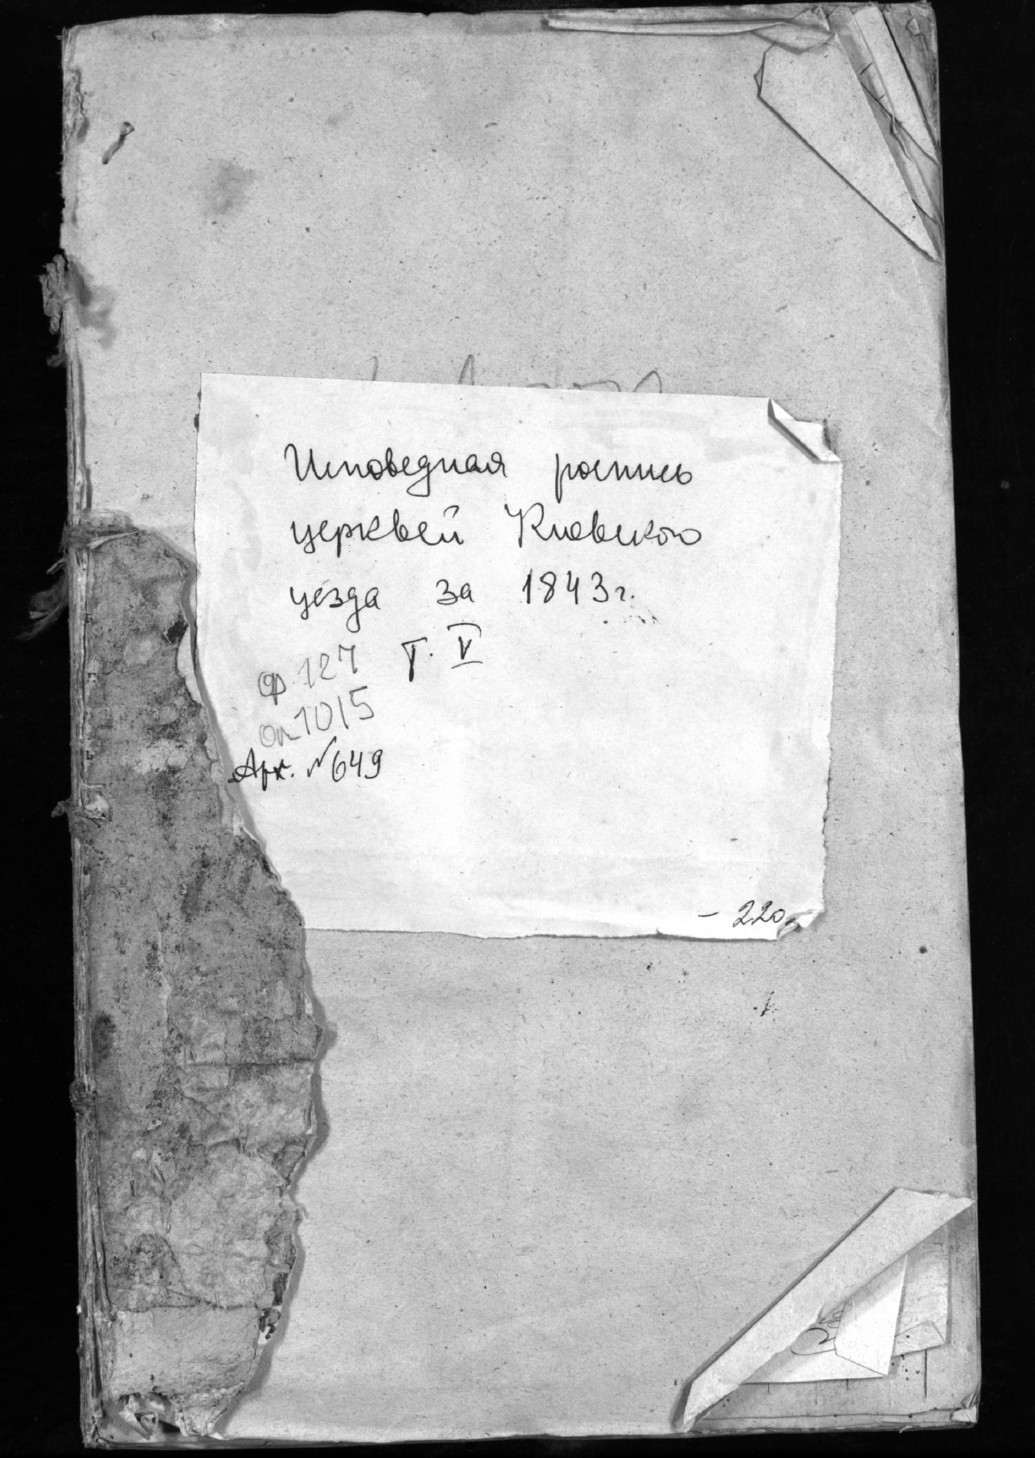 Исповедная роспись
церквей Киевского
уезда за 1843г.
Т. V
ф. 127
оп 1015
Арх. №649
- 220